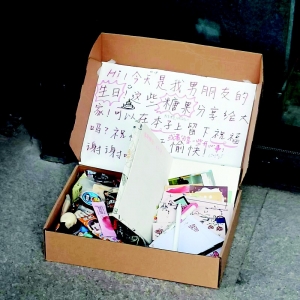 Hi！今天是我男朋友的
生日！这些糖果分享给大
家！可以在本子上留下祝福
吗？祝
愉快！
谢谢